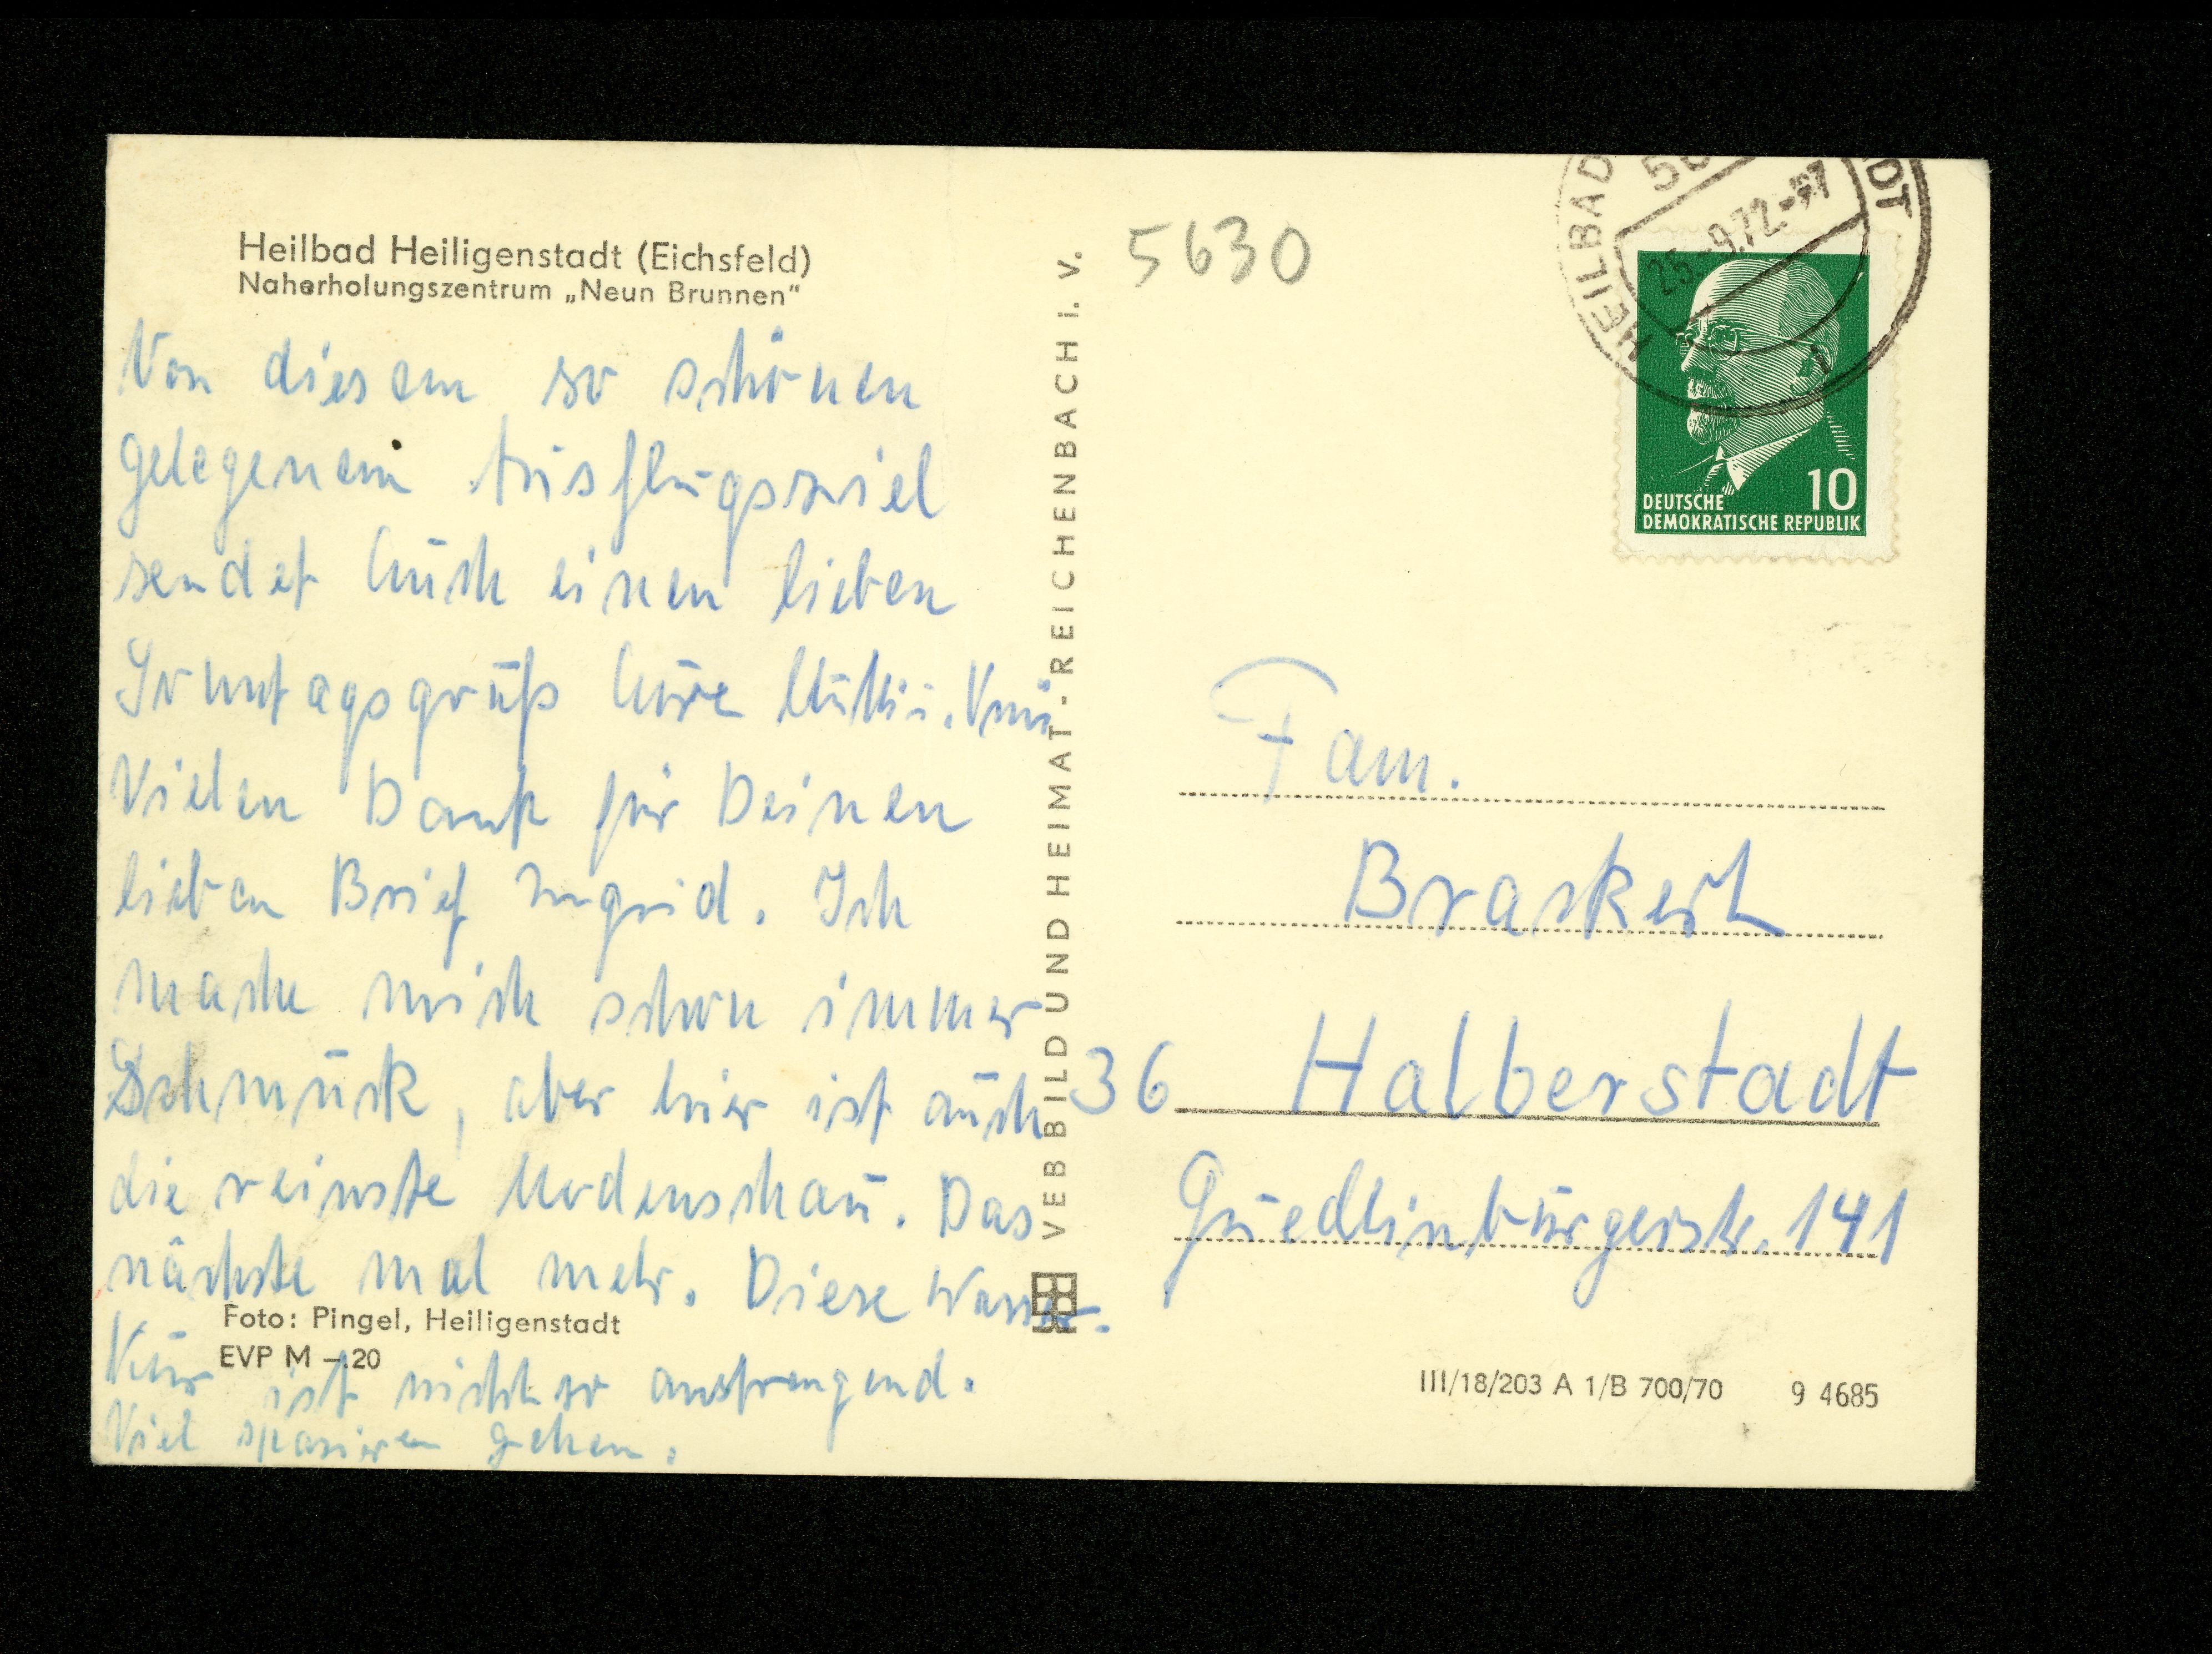 Heilbad Heiligenstadt (Eichsfeld)
Naherholungszentrum „Neun Brunnen“
Von diesem so schönen
gelegenem Ausflugsziel
sendet Euch einen lieben
Sonntagsgruß Eure Mutti.
Vielen Dank für Deinen
lieben Brief Ingrid. Ich
mache mich schon immer
Schmuck, aber hier ist auch
die reinste Modenschau. Das
nächste mal mehr. Diese Wasser-
Kur ist nicht so anstrengend.
Viel spazieren gehen.
Foto: Pingel, Heiligenstadt
EVP M –.20
VEB BILD UND HEIMAT - REICHENBACH I. V.
5630
HEILBAD
DT
25.-9.72.
DEUTSCHE
DEMOKRATISCHE REPUBLIK
10
Fam.
36 Halberstadt
Quedlinburgerstr. 141
III/18/203 A 1/B 700/70 9 4685